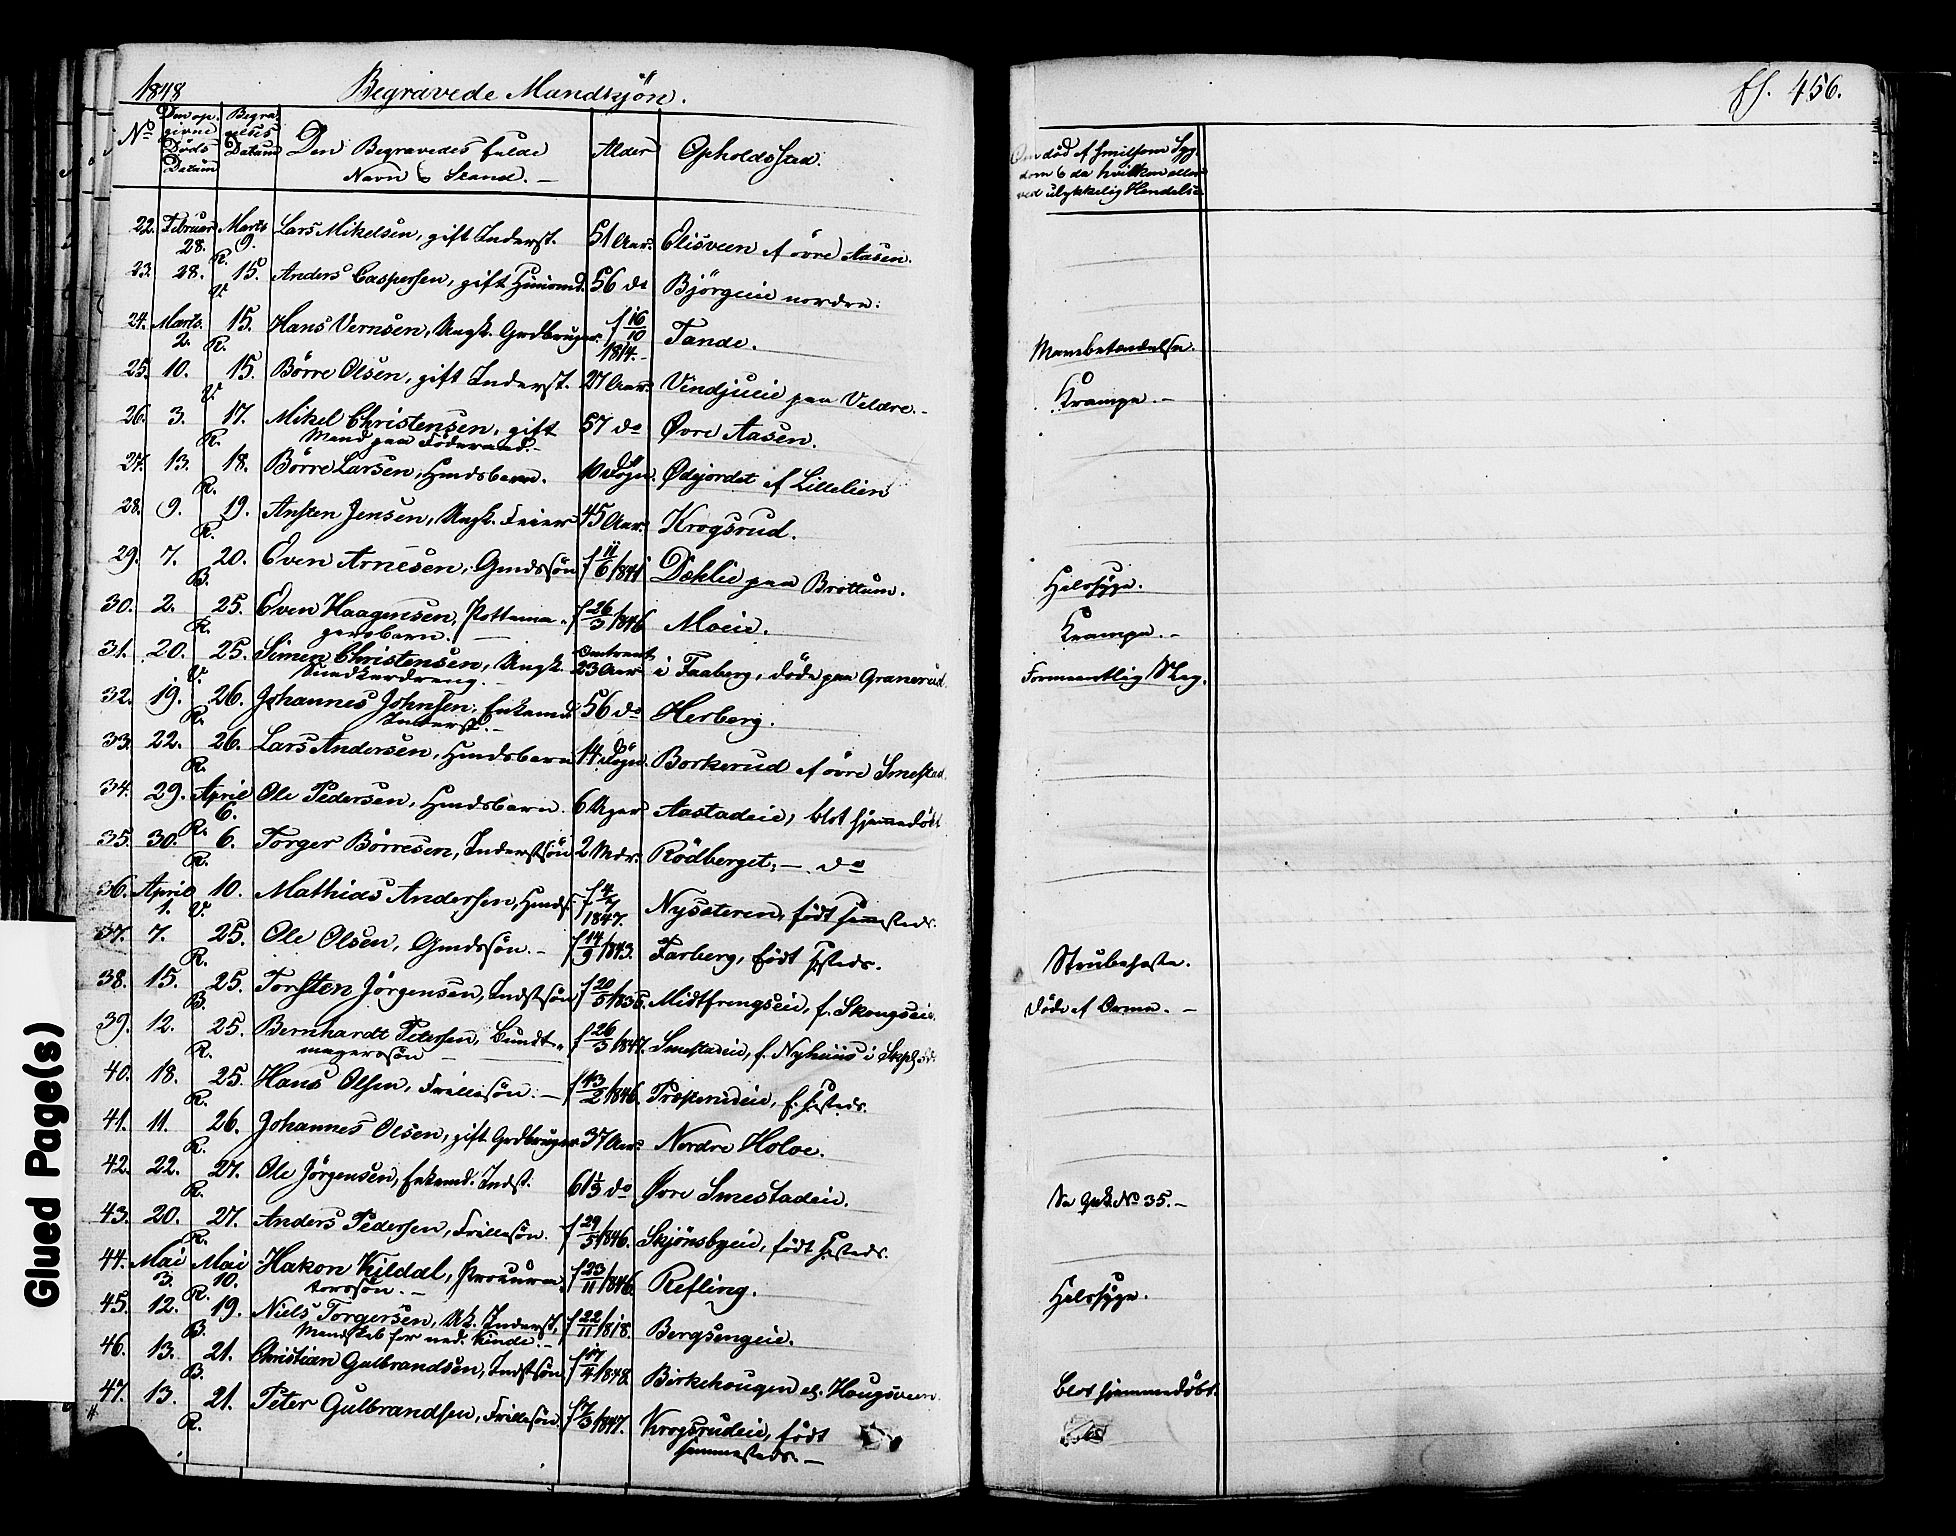 1848 Begravede Mandkjön. ff. 456.
No Den op- givne Döds Datum Begra- velses Datum Den Begravedes fulde Navn & Stand. – Alder Opholdssted. Om död af smitsom Syg- dom & da hvilken eller ved ulykkelig Hendelse
22. Februar 28. Marts 9. R. Lars Mikelsen, gift Inderst. 51 Aar. Elisveen af övre Aasen.
23. 28. 15. V. Anders Caspersen, gift Huusmd. 56 do Björgeeie nordre.
24. Marts 2. 15. R. Hans Vernsen, Ungk. Grdbruger f 16/10 1814.- Tande.
25. 10. 15. V. Börre Olsen, gift Inderst. 27 Aar. Vindjueie paa Veldre.- Krampe.–
26. 3. 17. R. Mikel Christensen, gift Mand paa Föderaad.- 57 do Øvre Aasen.
27. 13. 18. R. Börre Larsen, Hmdsbarn. 10 Dögn. Ødejordet af Lillelien
28. 9. 19. R. Ansten Jensen, Ungk. Feier 45 Aar. Krogsrud.
29. 7. 20. B. Even Arnesen, Gmdssön f 11/6 1841 Dæhlie paa Bröttum. Helssyge.
30. 2. 25. R. Even Haagensen, Pottema- gersbarn. f 26/3 1846 Moeie. Krampe.–
31. 20. 25. V. Simen Christensen, Ungk. Snedkerdreng.– omtrent 23 Aar i Faaberg, döde paa Granerud. Formeentlig Slag.
32. 19. 26. R. Johannes Johnsen, Enkemd. Inderst.– 56 do Herberg.
33. 22. 26. R. Lars Andersen, Hmdsbarn 14 Dögn. Borkerud af övre Smestad
34. 29. April 6. R. Ole Pedersen, Hmdsbarn. 6 Uger Aastadeie, blot hjemmedöbt
35. 30. 6. R. Torger Börresen, Inderstsön 2 Mdr. Rödberget, – do
36. April 1. 10. V. Mathias Andersen, Hmds. f 4/7 1847. Nyseteren, födt hjemmesteds.
37. 7. 25. R. Ole Olsen, Gmdssön.– f 14/9 1843. Farberg, födt hsteds. Strubehoste.
38. 15. 25. B. Torsten Jörgensen, Indstsön f 20/5 1835. Midtfrengseie, f. Skougseie. Döde af Orme.–
39. 12. 25. R. Bernhardt Petersen, Bundt- magersön f 26/3 1847. Smestadeie, f. Nyhuus i
40. 18. 25. R. Hans Olsen, Frillesön.– f 13/2 1846. Præsterudeie, f. hsteds.
41. 11. 26. R. Johannes Olsen, gift Grdbruger 37 Aar. Nordre Holoe.
42. 22. 27. R. Ole Jörgensen, Enkemd. Indst. 61 1/3 do Øvre Smestadeie. No 35.–
43. 20. 27. R. Anders Pedersen, Frillesön. f 29/5 1846. Skjönsbyeie, födt hsteds.
44. Mai 3. Mai 10. R. Hakon Kildal, Procura- torssön.– f 23/11 1846. Refling. Helssyge.
45. 12. 19. B. Niels Torgersen, Uk. Inderst, Mandskab for ned. Kinde.– f 22/11 1818. Bergsengeie.
46. 13. 21. B. Christian Gulbrandsen, Indstsön f 17/4 1848 Birkehougen el. Hougsveen. Blot hjemmedöbt.
47. 13. 21. R. Peter Gulbrandsen, Frillesön f 7/3 1847. Krogsrudeie, födt hjemmesteds.–
Glued Page(s)